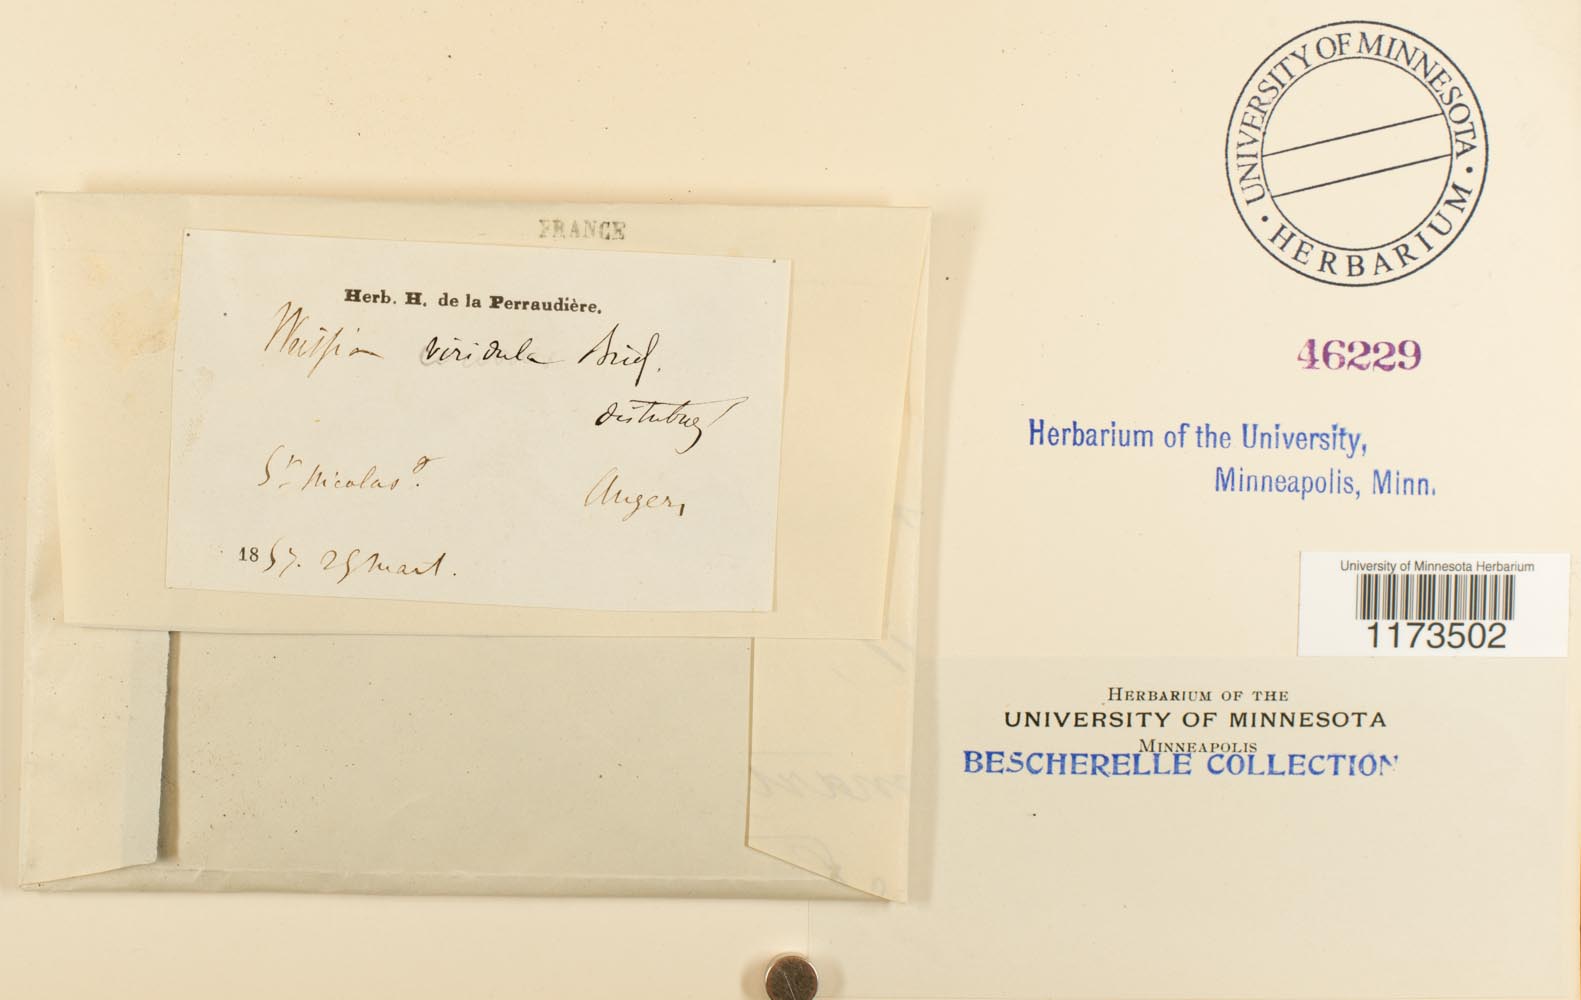 UNIVERSITY OF MINNESOTA
· HERBARIUM ·
FRANCE
Herb. H. de la Perraudière.
Weissia viridula Brid.
St Nicolas
Angers
1857. 29 mart.
46229
Herbarium of the University,
Minneapolis, Minn.
University of Minnesota Herbarium
1173502
HERBARIUM OF THE
UNIVERSITY OF MINNESOTA
MINNEAPOLIS
BESCHERELLE COLLECTION